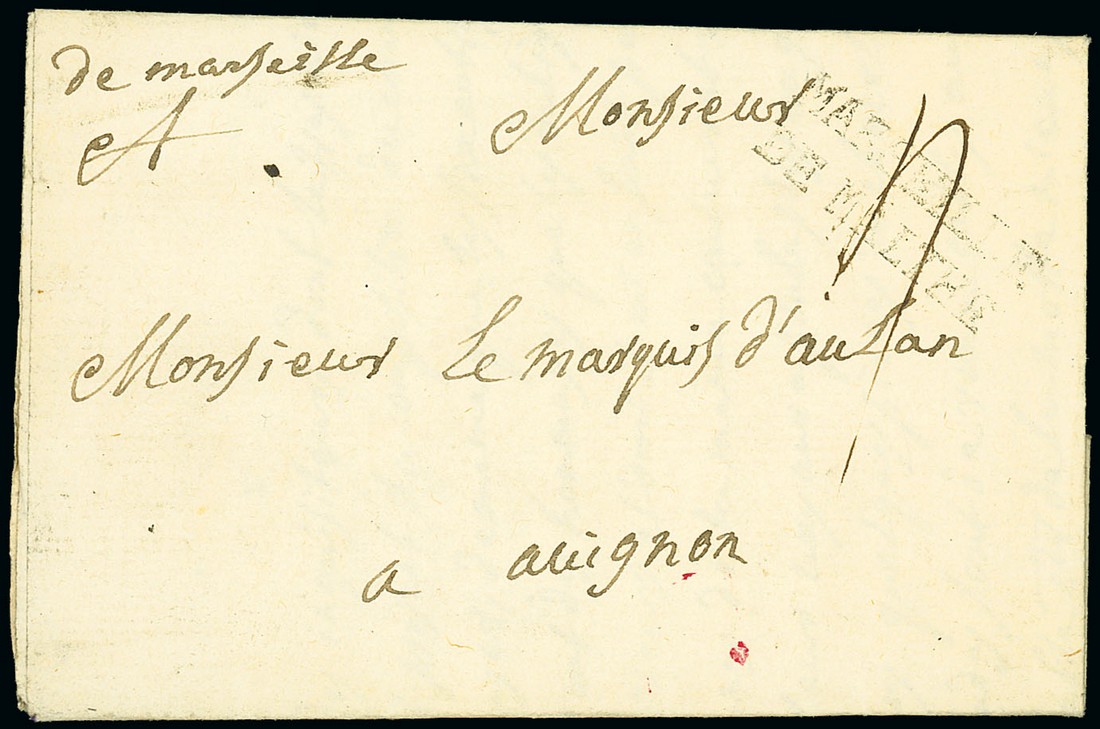 de marseille
A Monsieur
MARSEILLE
DE MALTHE
Monsieur Le marquis d'aulan
a avignon